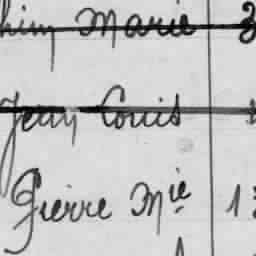 Marie 3
Jean Louis
Pierre Mie 1